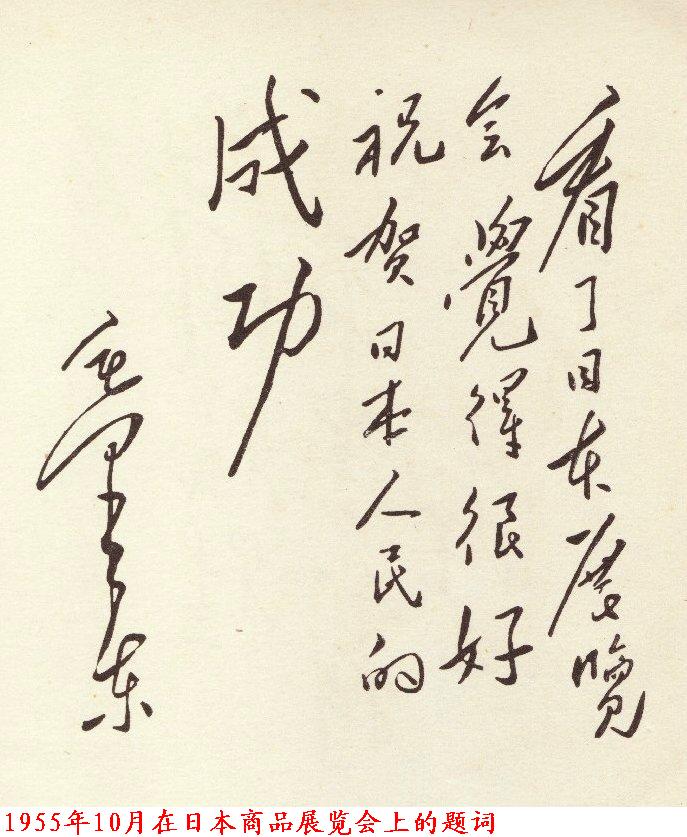 看了日本展覽
会覺得很好
祝贺日本人民的
成功
毛泽东
1955年10月在日本商品展览会上的题词